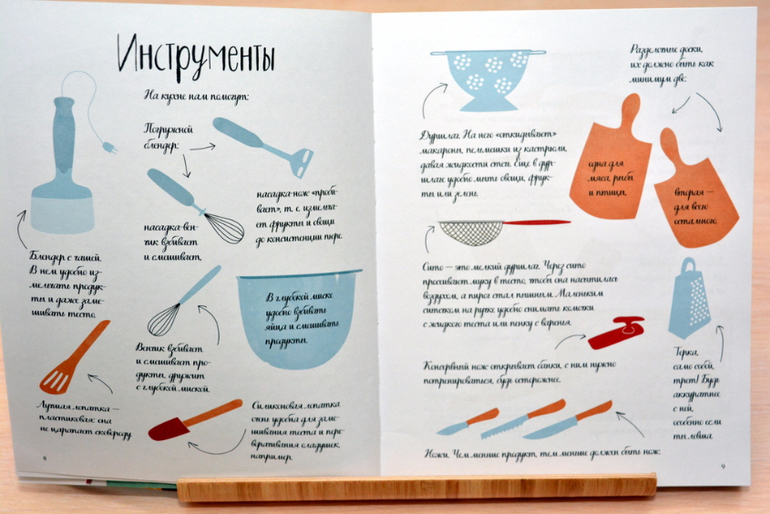 Инструменты
На кухне нам помогут:
Погружной
блендер:
насадка-нож «проби-
вает», т. е. измельча-
ет фрукты и овощи
до консистенции пюре.
насадка-вен-
чик взбивает
и смешивает.
Блендер с чашей.
В нем удобно из-
мельчать продук-
ты и даже заме-
шивать тесто.
В глубокой миске
удобно взбивать
яйца и смешивать
продукты.
Венчик взбивает
и смешивает про-
дукты, дружит
с глубокой миской.
Лучшая лопатка —
пластиковая: она
не царапает сковороду.
Силиконовая лопатка
очень удобна для заме-
шивания теста и пере-
ворачивания оладушек,
например.
8
Дуршлаг. На него «откидывают»
макароны, пельмешки из кастрюли,
давая жидкости стечь. Еще в дур-
шлаге удобно мыть овощи, фрук-
ты или зелень.
Разделочные доски,
их должно быть как
минимум две:
одна для
мяса, рыбы
и птицы,
вторая —
для всего
остального.
Сито — это мелкий дуршлаг. Через сито
просеивают муку в тесто, чтобы она насытилась
воздухом, а пирог стал пышным. Маленьким
ситечком на ручке удобно снимать комочки
с жидкого теста или пенку с варенья.
Консервный нож открывает банки, с ним нужно
потренироваться, будь осторожнее.
Терка,
само собой,
трет! Будь
аккуратнее
с ней,
особенно если
ты левша.
Ножи. Чем меньше продукт, тем меньше должен быть нож.
9